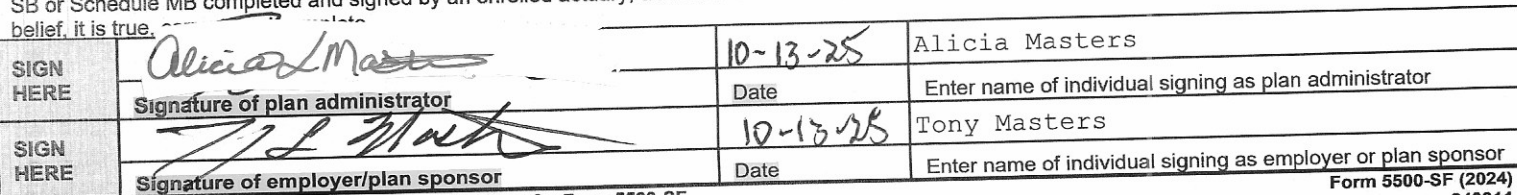 SB or Schedule MB completed and signed by an enrolled actuary,
belief, it is true,
SIGN HERE
Alicia L Masters
10-13-25
Alicia Masters
Signature of plan administrator
Date
Enter name of individual signing as plan administrator
SIGN HERE
T L Mast
10-13-25
Tony Masters
Signature of employer/plan sponsor
Date
Enter name of individual signing as employer or plan sponsor
Form 5500-SF (2024)